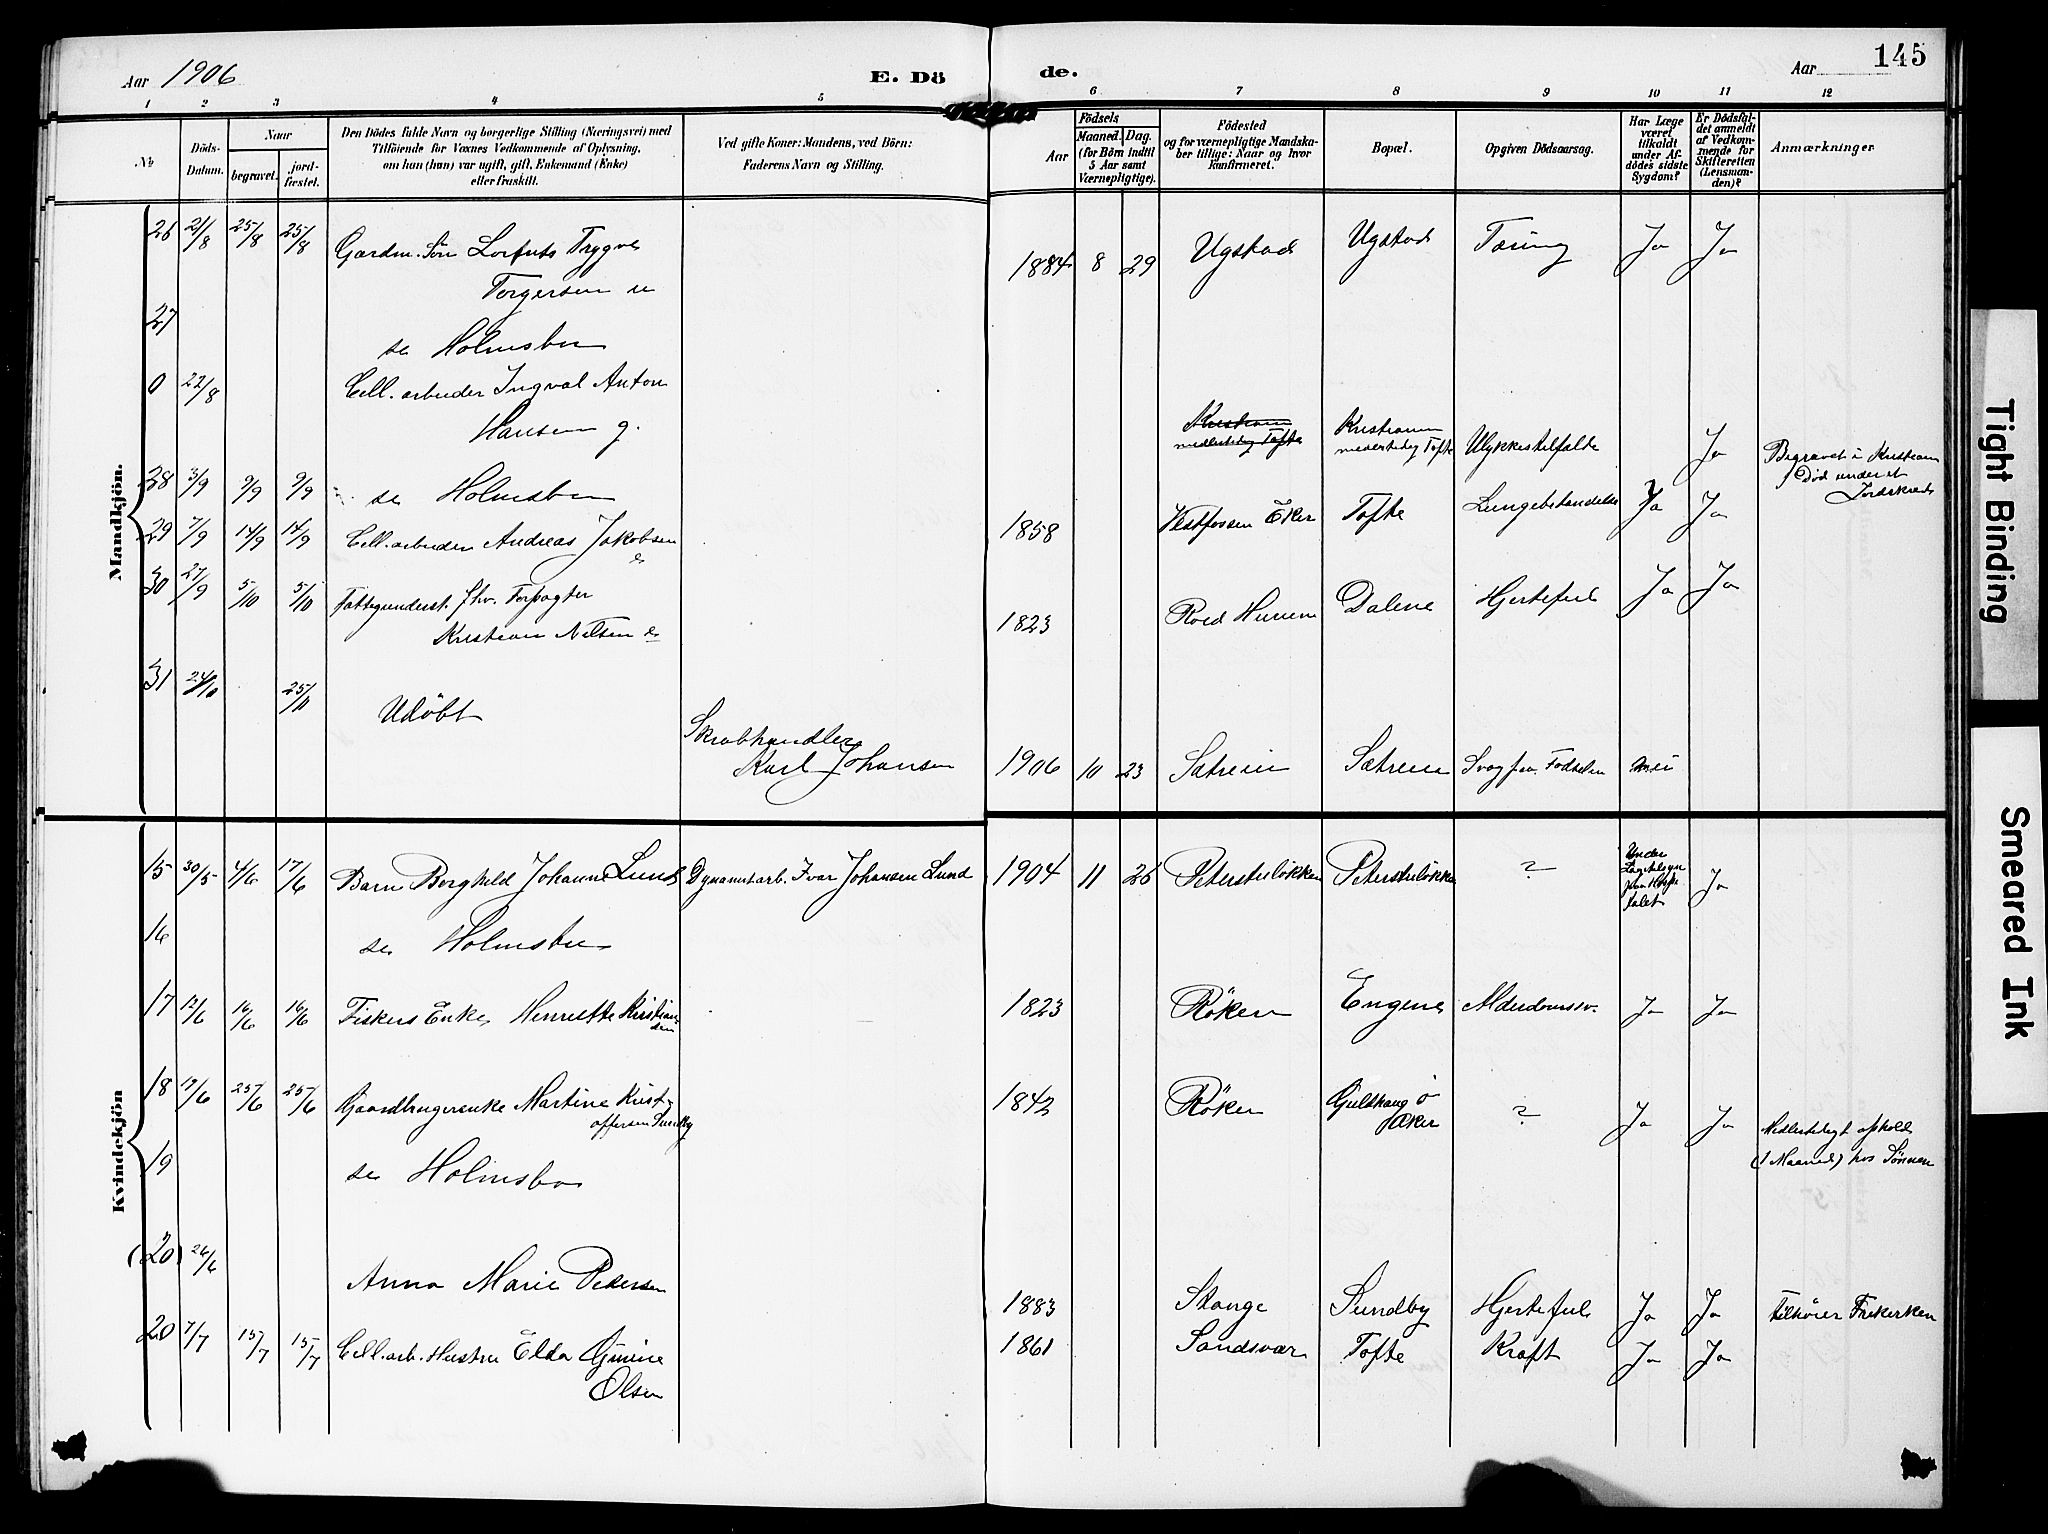 Aar 1906 E. Dö de. Aar 145
1 2 3 4 5 6 7 8 9 10 11 12
No
Döds-Datum.
Naar
begravet.
jord-fæstet.
Den Dödes fulde Navn og borgerlige Stilling (Næringsvei) med
Tilföiende for Voxnes Vedkommende af Oplysning,
om han (hun) var ugift, gift, Enkemand (Enke)
eller fraskilt.
Ved gifte Koner: Mandens, ved Börn:
Faderens Navn og Stilling.
Aar
Födsels
Maaned. Dag.
(for Börn indtil
5 Aar samt
Værnepligtige).
Födested
og for værnepligtige Mandska-
ber tillige: Naar og hvor
konfirmeret.
Bopæl.
Opgiven Dödsaarsag.
Har Læge
været
tilkaldt
under Af-
dödes sidste
Sygdom?
Er Dödsfal-
det anmeldt
af Vedkom-
mende for
Skifteretten
(Lensman-
den)?
Anmærkninger
Mandkjön.
26 21/8 25/8 25/8 Gardm. Søn Trygve 1884 8 29 Ugstad Ugstad Tæring Ja Ja
Torgersen u
27
se Holmsbu
0 22/8 Cell. arbeider Ingval Anton
Hansen g. Kristiania Kristiania Ulykkestilfælde Ja Begravet i Kristiania
midlertidig Tofte midlertidig Tofte Død under et
Jordskred
28 3/9 9/9 9/9 se Holmsbu
29 7/9 14/9 14/9 Cell. arbeider Andreas Jakobsen 1858 Vestfossen Eker Tofte Lungebetændelse Ja Ja
30 27/9 5/10 5/10 Fattigunderst. fhv. Forpagter 1823 Roed Hurum Dalene Hjertefeil Ja Ja
Kristian Nilsen e
31 24/10 25/10 Udøbt
Skrabhandler
Karl Johansen 1906 10 23 Sætre Sætre Svag fra Fødselen nei
Kvindekjön
15 30/5 4/6 17/6 Barn Borghild Johanne Lund Dynamitarb. Ivar Johansen Lund 1904 11 26 Petersteløkken Petersteløkken ? Under
Lægetilsyn
paa Hospi
talet Ja
16
se Holmsbu
17 12/6 16/6 16/6 Fiskers Enke Henriette Kristian-
sen 1823 Røken Engene Alderdomssv. Ja Ja
18 19/6 25/6 25/6 Gaardbrugerenke Martine Krist-
offersen Sundby 1842 Røken ø
Aker ? Ja Ja Midlertidigt ophold
(1 Maaned) hos Sønnen
19
se Holmsbu
(20) 26/6
Anna Marie Pedersen 1883 Stange Sundby Hjertefeil Ja Ja Tilhører Frikirken
20 7/7 15/7 15/7 Cell. arb. Hustru Elda Gurine
Olsen 1861 Sandsvær Tofte Kræft Ja Ja
Tight Binding
Smeared Ink